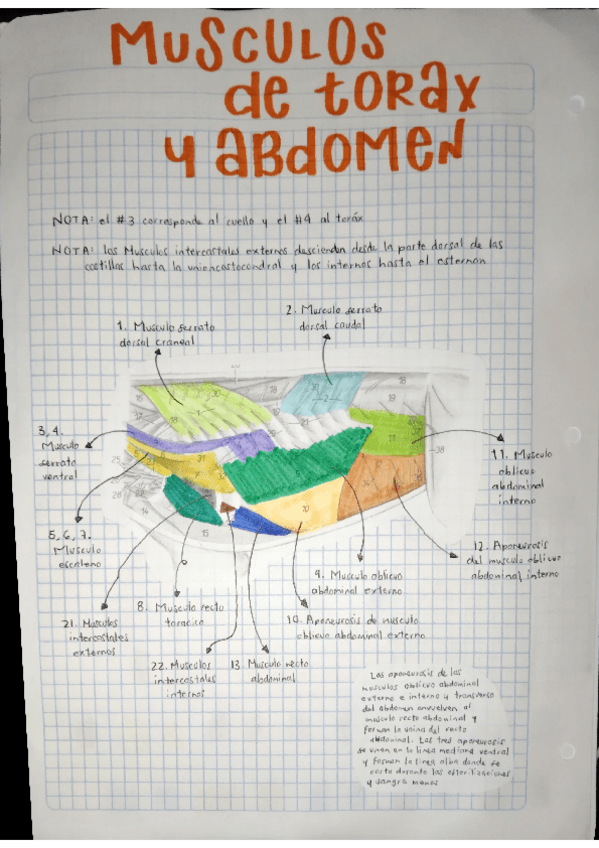 MUSCULOS
de TORAX
Y ABDOMEN
NOTA: el #3 corresponde al cuello y el #4 al toráx
NOTA: los Musculos intercostales externos descienden desde la parte dorsal de las
costillas hasta la unioncostocondral y los internos hasta el esternon
2. Musculo serrato
dorsal caudal
1. Musculo serrato
dorsal craneal
3, 4.
Musculo
serrato
ventral
11. Musculo
oblicuo
abdominal
interno
5, 6, 7.
Musculo
escaleno
12. Aponeurosis
del musculo oblicuo
abdominal interno
9. Musculo oblicuo
abdominal externo
8. Musculo recto
toracico
10. Aponeurosis de musculo
oblicuo abdominal externo
21. Musculos
intercostales
externos
22. Musculos
intercostales
internos
13 Musculo recto
abdominal
Las aponeurosis de los
musculos oblicuo abdominal
externo e interno y transverso
del abdomen envuelven al
musculo recto abdominal y
forman la vaina del recto
abdominal. Las tres aponeurosis
se unen en la linea mediana ventral
y forman la linea alba donde se
corta durante las esterilizaciones
y sangra menos
18
30
2
18
16
17
18
1
21
11
38
25
31
9
28
14
10
15